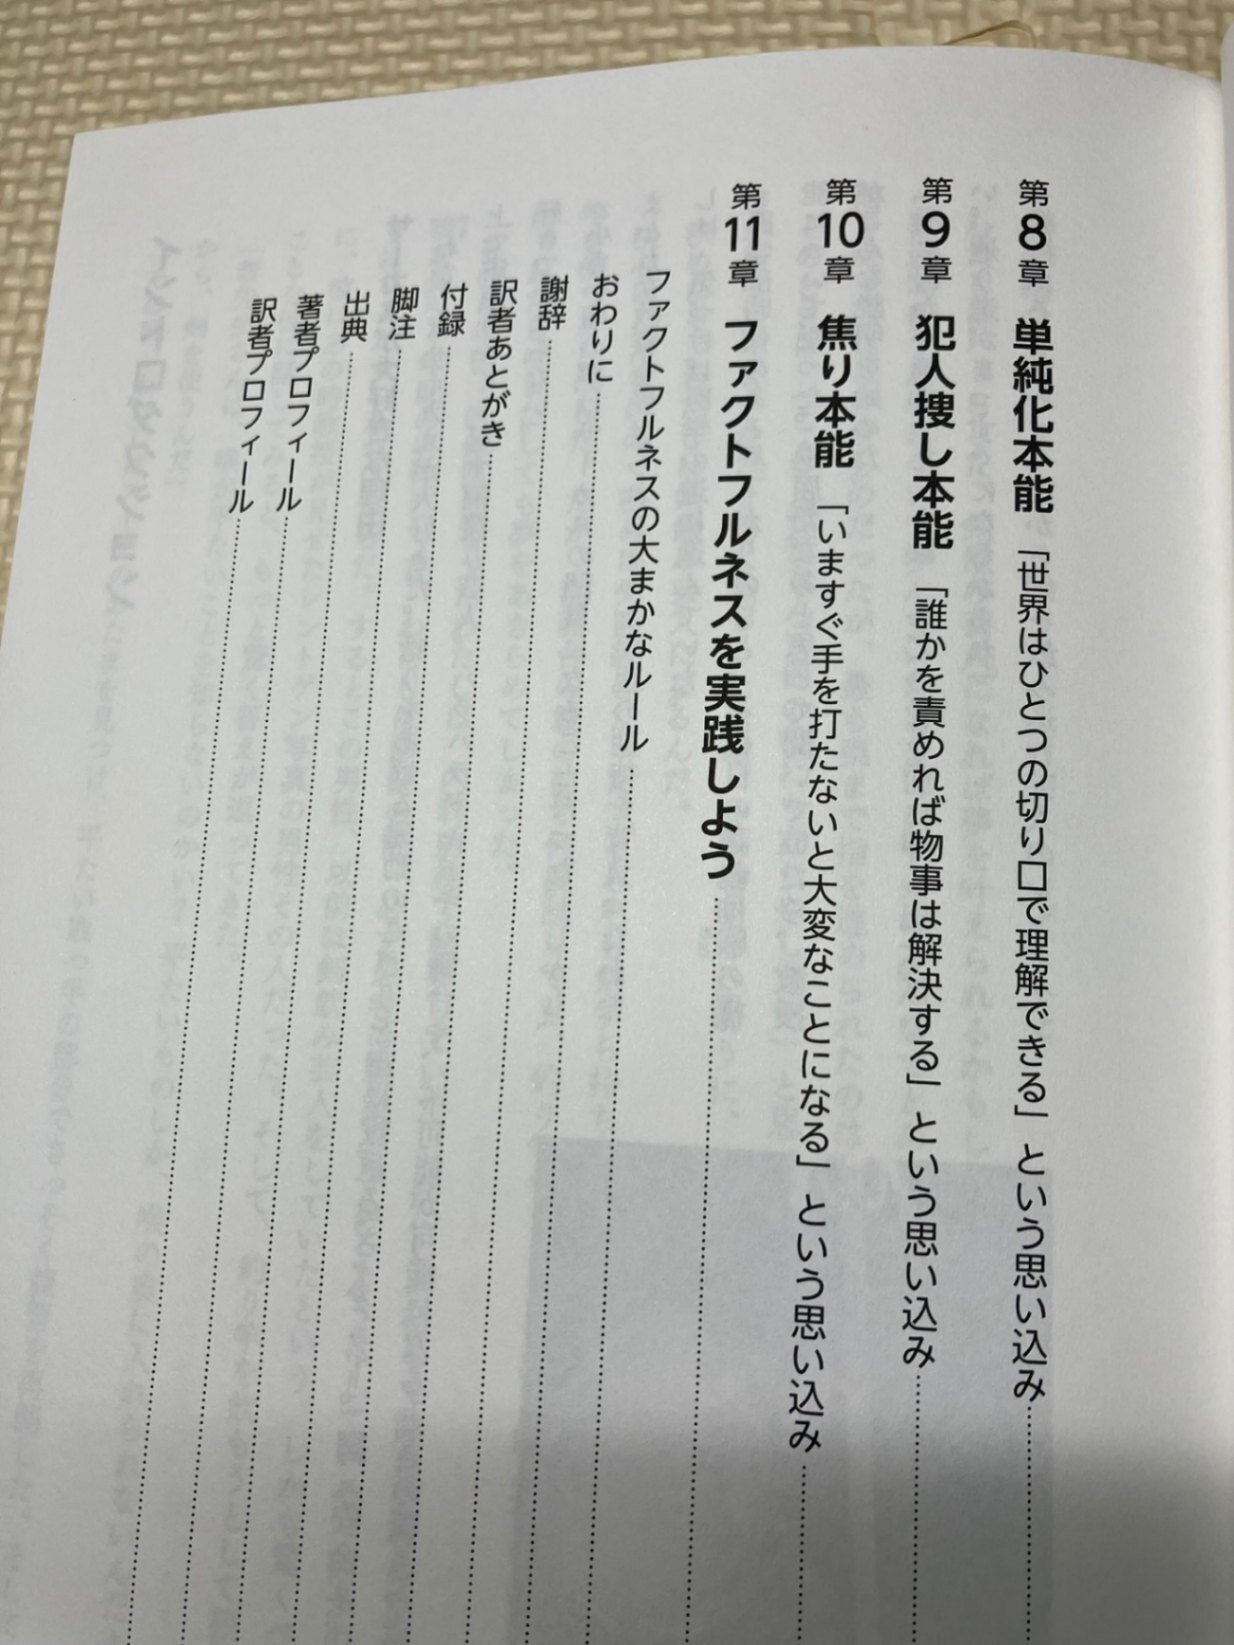 第8章 単純化本能 「世界はひとつの切り口で理解できる」という思い込み
第9章 犯人捜し本能 「誰かを責めれば物事は解決する」という思い込み
第10章 焦り本能 「いますぐ手を打たないと大変なことになる」という思い込み
第11章 ファクトフルネスを実践しよう
ファクトフルネスの大まかなルール
おわりに
謝辞
訳者あとがき
付録
脚注
出典
著者プロフィール
訳者プロフィール